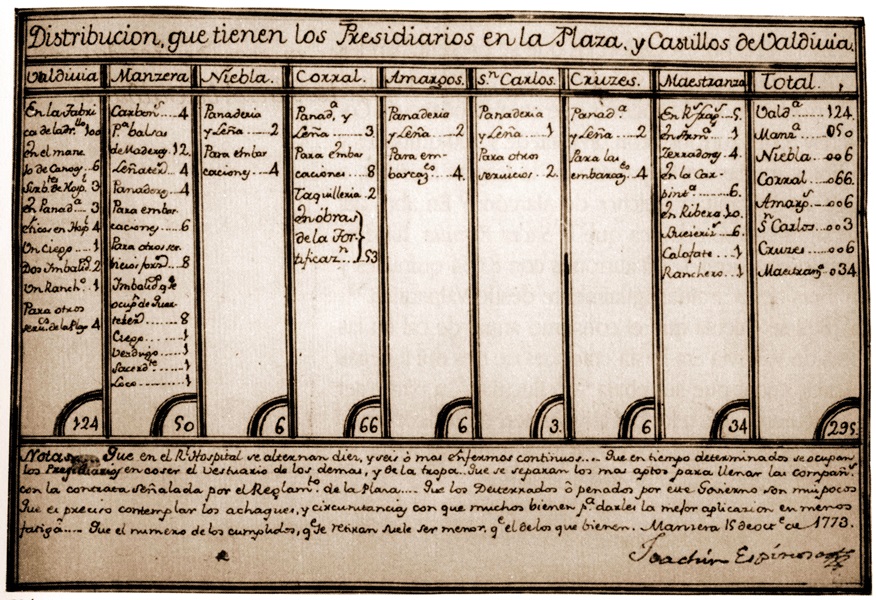 Distribucion, que tienen los Presidiarios en la Plaza, y Castillos de Valdivia.
Valdivia
En la Fabri
ca de Ladr.llo 100
En el mane
jo de Canoas 6
Sirb.tes de Hosp. 3
En Panad.a 3
eticos en Hosp. 4
Un Ciego 1
Dos Imbalid.s 2
Un Ranch.o 1
Para otros
serv.cs de la Plaza 4
124
Manzera
Carbon.s 4
P.a balsas
de Maderas 12
Leñater.s 4
Panaderos 4
Para embar
caciones 6
Para otros ser
vicios forz.s 8
Imbalid.s q.e se
ocup.n de Quar
teler.s 8
Ciego 1
Verdugo 1
Sacerd.te 1
Loco 1
50
Niebla.
Panaderia
y Leña 2
Para Embar
caciones 4
6
Corral.
Panad.a y
Leña 3
Para embar
caciones 8
Taquilleria 2
En obras
de la For
tificaz.n 53
66
Amargos.
Panaderia
y Leña 2
Para em-
barcaz.es 4.
6
S.n Carlos.
Panaderia
y Leña 1
Para otros
servicios 2.
3.
Cruzes.
Panad.a
y Leña 2
Para las
embarcaz.es 4
6
Maestranza
En R.s frag.s 5.
en Arm.a 1
Zerradores 4
en la Car-
pint.a 6.
en Ribera 10.
6.
Calafate 1
Ranchero 1
34
Total.
Vald.a 124.
Manz.a 050
Niebla 006
Corral 066.
Amarg.s 006
S.n Carlos 003
Cruzes 006
Maestranz.a 034
295.
Notas Que en el R.l Hospital se alternan diez, y seis ò mas enfermos continuos.... Que en tiempo determinados se ocupan
los Presidiarios en coser el Vestuario de los demas, y de la tropa.. Que se separan los mas aptos para llenar las compañ.s
con la contrata señalada por el Reglam.to de la Plaza.... Que los Desterrados ò penados por este Govierno son mui pocos
Que es preciso contemplar los achaques, y circunstancias con que muchos bienen p.a darles la mejor aplicacion en menos
fatiga.... Que el numero de los cumplidos, q.e se retiran suele ser menor, q.e el de los que bienen. Manzera 15 de de 1773.
Joachin Espinosa